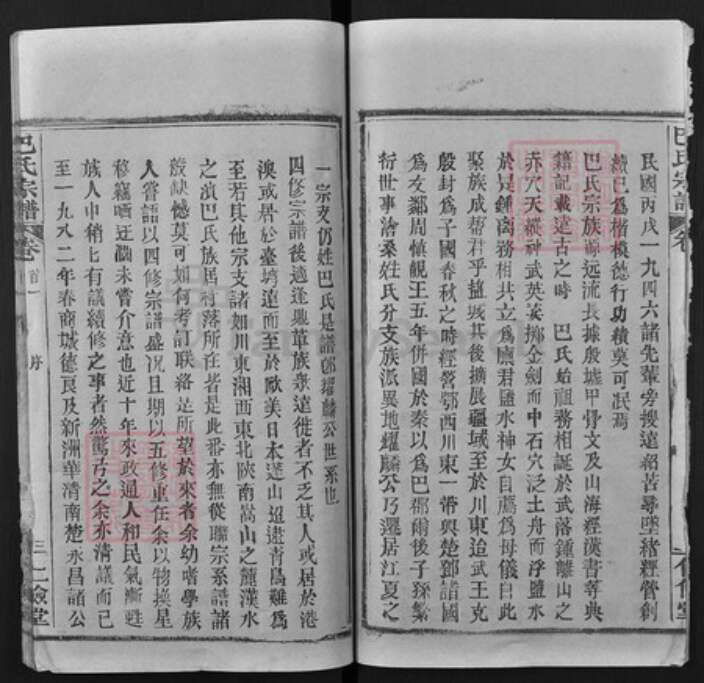 巴氏宗譜
卷
民國丙戌一九四六諸先輩旁搜遠紹苦尋墜緒經營創
續已爲楷模德行功績莫可泯焉
巴氏宗族源远流長據殷墟甲骨文及山海經漢書等典
籍記載遠古之時 巴氏始祖務相誕於武落鍾離山之
赤穴天縱神武英姿擲全劍而中石穴泛土舟而浮鹽水
於是鍾离務相共立爲廩君鹽水神女自薦爲母儀自此
聚族成帮君乎塩城其後擴展疆域至於川東迨武王克
殷封爲子國春秋之時經營鄂西川東一帶與楚鄧諸國
爲友鄰周慎靚王五年併國於秦以爲巴郡爾後子孫繁
衍世事滄桑姓氏分支族派異地耀麟公乃遷居江夏之
一宗支仍姓巴氏是譜卽耀麟公世系也
四修宗譜後適逢鼎革族衆遠徙者不乏其人或居於港
澳或居於臺塆遠而至於歐美日本蓬山迢遞青鳥難爲
至若其他宗支諸如川東湘西東北陝南嵩山之麓漢水
之滨巴氏族居村落所在者是此番亦無從聯宗系譜諸
般缺憾莫可如何考訂联絡是所望於來者余幼嗜學族
人嘗語以四修宗譜盛况且期以五修重任余以物換星
移竊嘖迂濶未嘗介意也近十年來政通人和民气漸甦
族人中稍匕有議續修之事者然驚喜之余亦清議而已
至一九八二年春商城德良及新洲華清南楚永昌諸公
巴氏宗譜
卷首一
序
三